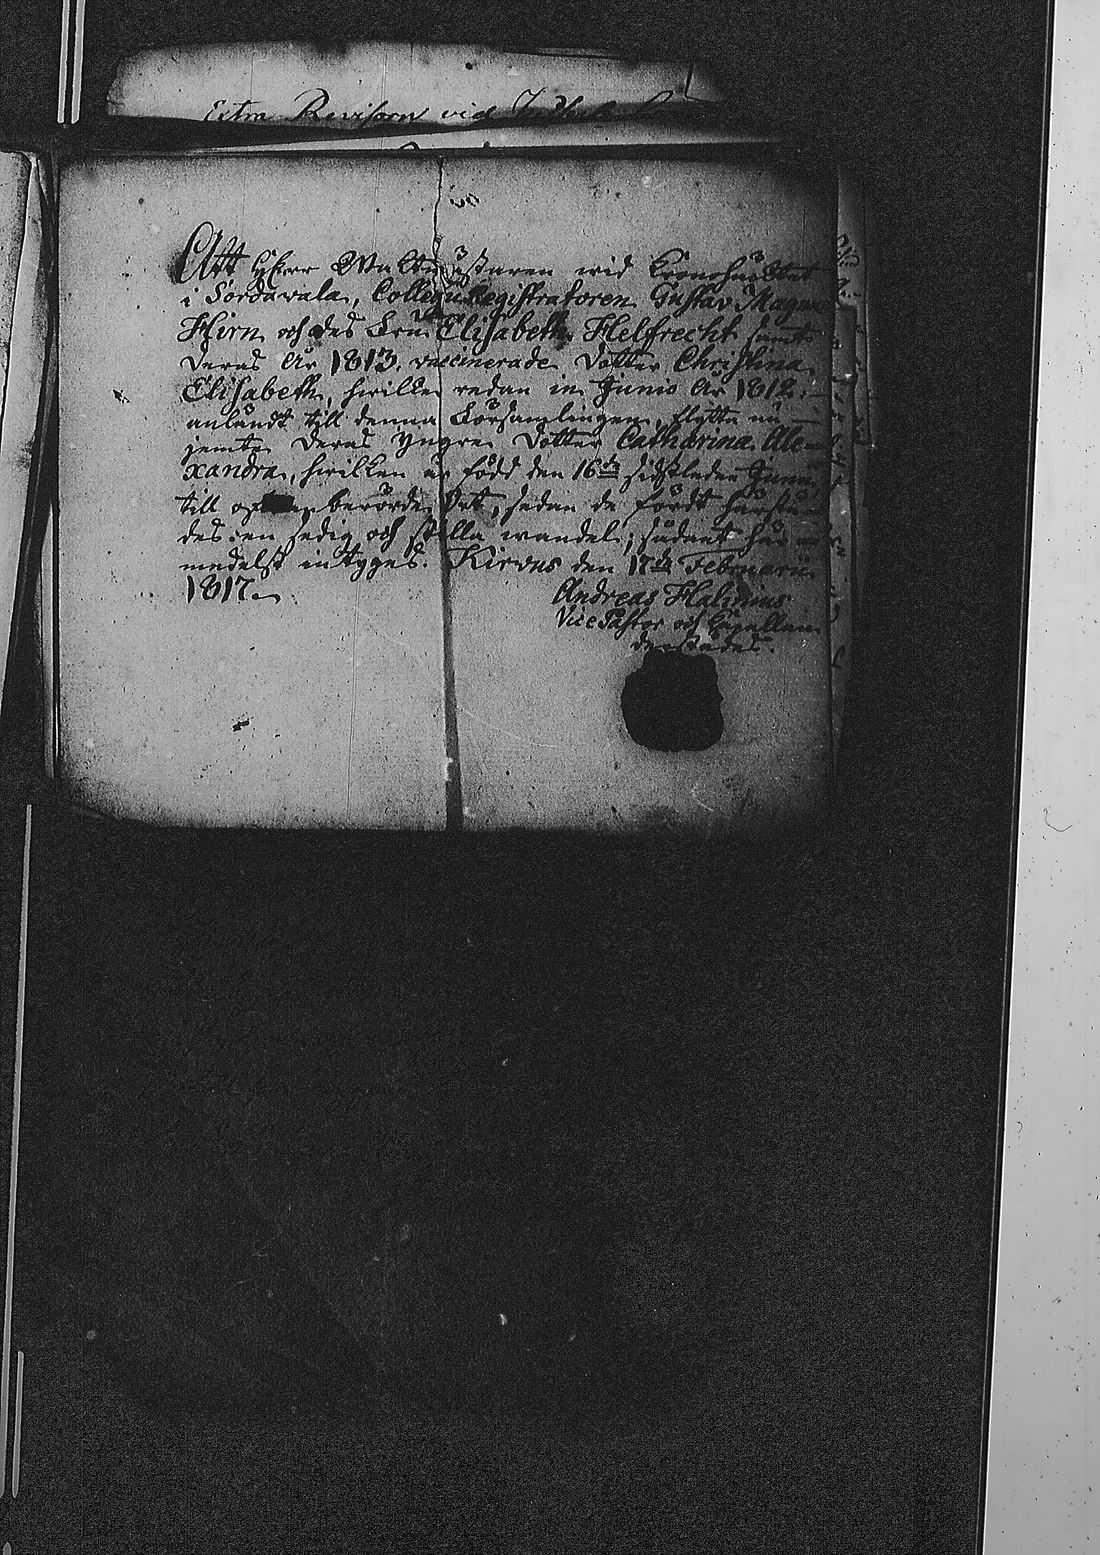 Extra Revisorn vid
Att Herr Waltmästaren wid Cronohäcktet
i Sordavala, Collegii Registratoren Gustav Magnus
Hirn och des Fru Elisabeth Helfrecht samt
deras År 1813. vaccinerade dotter Christina
Elisabeth, hwilka redan in Junio År 1812.
anländt till denna Församlingen, flytta nu
jemte deras Yngre dotter Catharina Ale-
xandra, hwilken är född den 16de sistledne Junii,
till berörde Ort, sedan de fördt härstä-
des en sedig och stilla wandel; sådant här-
medelst intygas. Kirvus den 17de Februarii
1817.
Andreas Halenius
Vice Pastor och